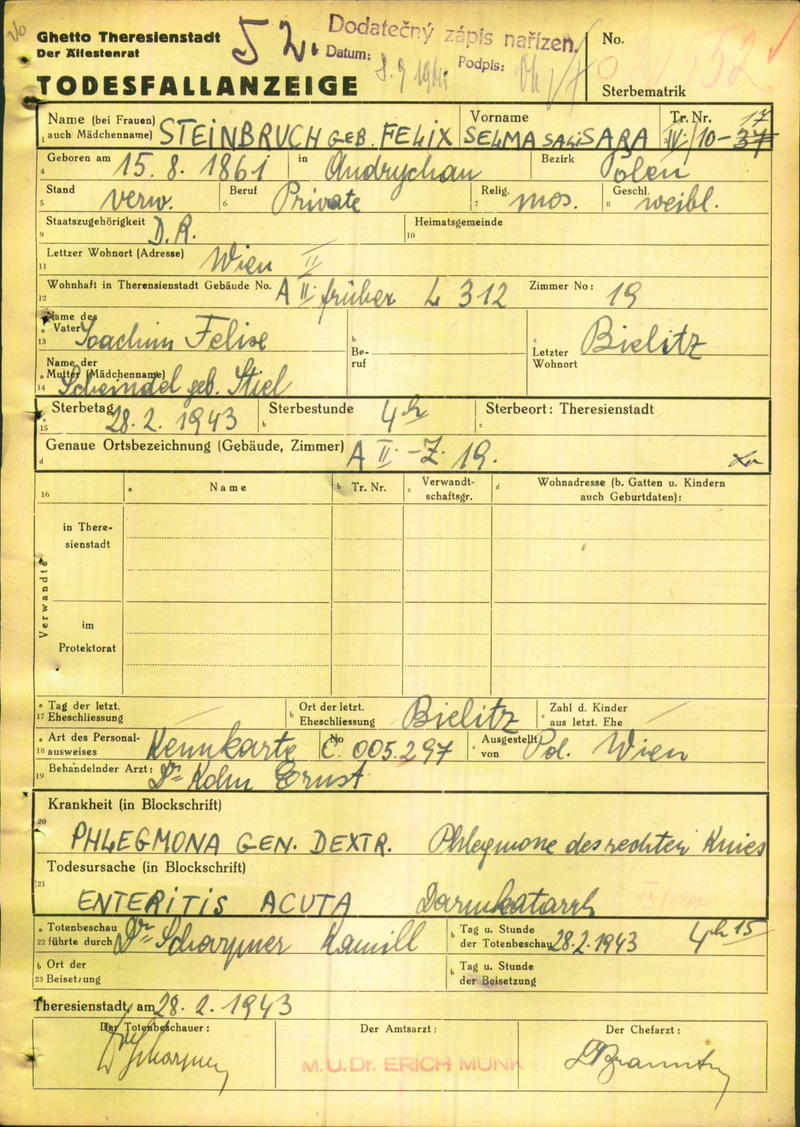 Ghetto Theresienstadt
Der Ältestenrat
52.
Dodatečný zápis nařízen.
Datum: Podpis:
No.
TODESFALLANZEIGE
Sterbematrik
Name (bei Frauen) Vorname Tr. Nr. 17
1 auch Mädchenname) STEINBRUCH GEB. FELIX SELMA SARA IV/10-37
Geboren am 15.8.1861 in Andrychau Bezirk Polen
4
Stand verw. Beruf Private Relig. mos. Geschl. weibl.
5 6 7 8
Staatszugehörigkeit D.R. Heimatsgemeinde
9 10
Lettzer Wohnort (Adresse) Wien II
11
Wohnhaft in Theresienstadt Gebäude No. A II früher L 312 Zimmer No: 19
12
Name des
a Vaters Joachim Felix b Be- ruf c Letzter Wohnort Bielitz
13
Name der
a Mutter (Mädchenname)
14 Scheindel geb. Stiel
a Sterbetag 28.2.1943 Sterbestunde 4h Sterbeort: Theresienstadt
15 b c
Genaue Ortsbezeichnung (Gebäude, Zimmer) A II.-Z. 19.
d
16 a Name b Tr. Nr. c Verwandt-schaftsgr. d Wohnadresse (b. Gatten u. Kindern auch Geburtdaten):
Verwandte
in There-
sienstadt
im
Protektorat
a Tag der letzt. b Ort der letzt. Bielitz c Zahl d. Kinder
17 Eheschliessung Eheschliessung aus letzt. Ehe
a Art des Personal- Kennkarte b No Č. 005.297 c Ausgestellt Pol. Wien
18 ausweises von
19 Behandelnder Arzt: Dr Kohn Ernst
Krankheit (in Blockschrift)
20
PHLEGMONA GEN. DEXTR. Phlegmone des rechten Knies
Todesursache (in Blockschrift)
21
ENTERITIS ACUTA Darmkatarrh
a Totenbeschau Dr Kamill b Tag u. Stunde 28.2.1943 4h15
22 führte durch der Totenbeschau
b Ort der b Tag u. Stunde
23 Beisetzung der Beisetzung
Theresienstadt, am 28.2.1943
Der Totenbeschauer: Der Amtsarzt: Der Chefarzt:
M.U.Dr. ERICH MUNK